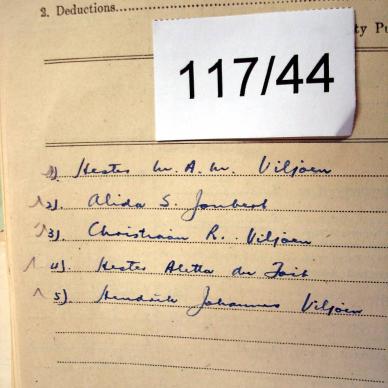 2. Deductions
ty Pu
117/44
1). Hester M. A. M. Viljoen
2). Alida S. Joubert
3). Christiaan R. Viljoen
4). Hester Aletta du Toit
5). Hendrik Johannes Viljoen